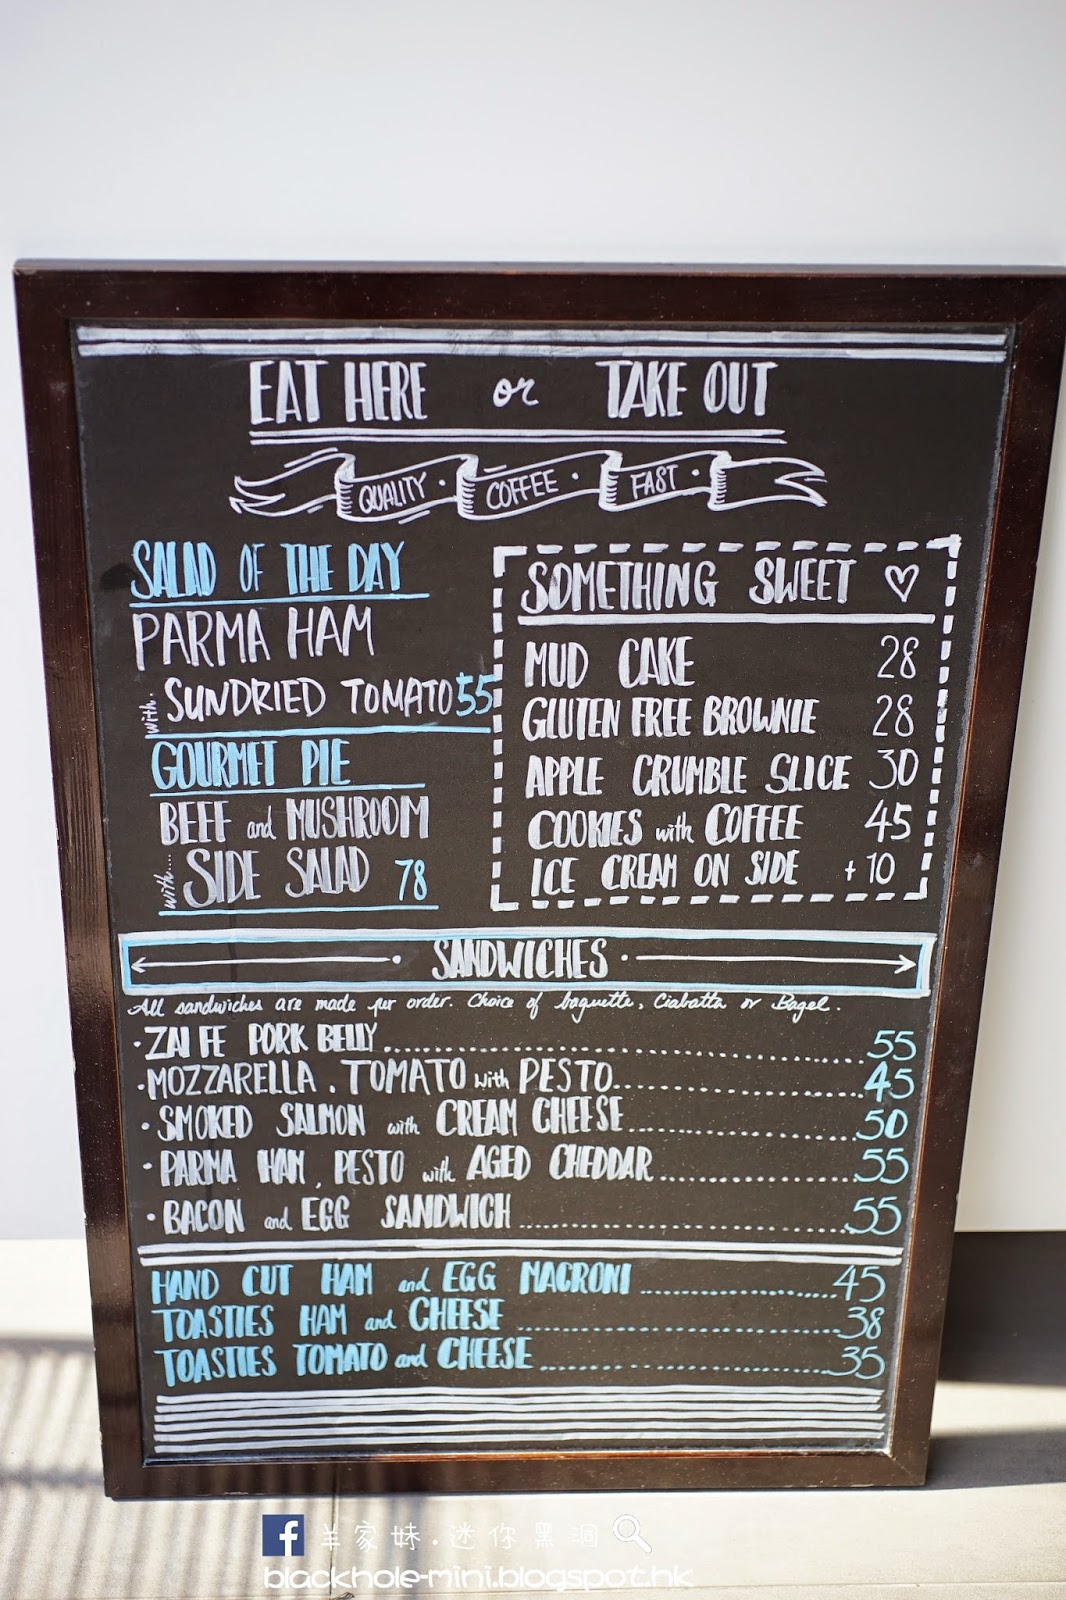 EAT HERE or TAKE OUT
QUALITY · COFFEE · FAST ·
SALAD OF THE DAY
PARMA HAM
with. SUNDRIED TOMATO 55
GOURMET PIE
BEEF and MUSHROOM
with.... SIDE SALAD 78
SOMETHING SWEET ♡
MUD CAKE 28
GLUTEN FREE BROWNIE 28
APPLE CRUMBLE SLICE 30
COOKIES with COFFEE 45
ICE CREAM ON SIDE +10
SANDWICHES
All sandwiches are made per order. Choice of baguette, Ciabatta or Bagel.
· ZAI FE PORK BELLY 55
· MOZZARELLA, TOMATO with PESTO 45
· SMOKED SALMON with CREAM CHEESE 50
· PARMA HAM, PESTO with AGED CHEDDAR 55
· BACON and EGG SANDWICH 55
HAND CUT HAM and EGG MACRONI 45
TOASTIES HAM and CHEESE 38
TOASTIES TOMATO and CHEESE 35
f 羊家妹.迷你黑洞
blackhole-mini.blogspot.hk